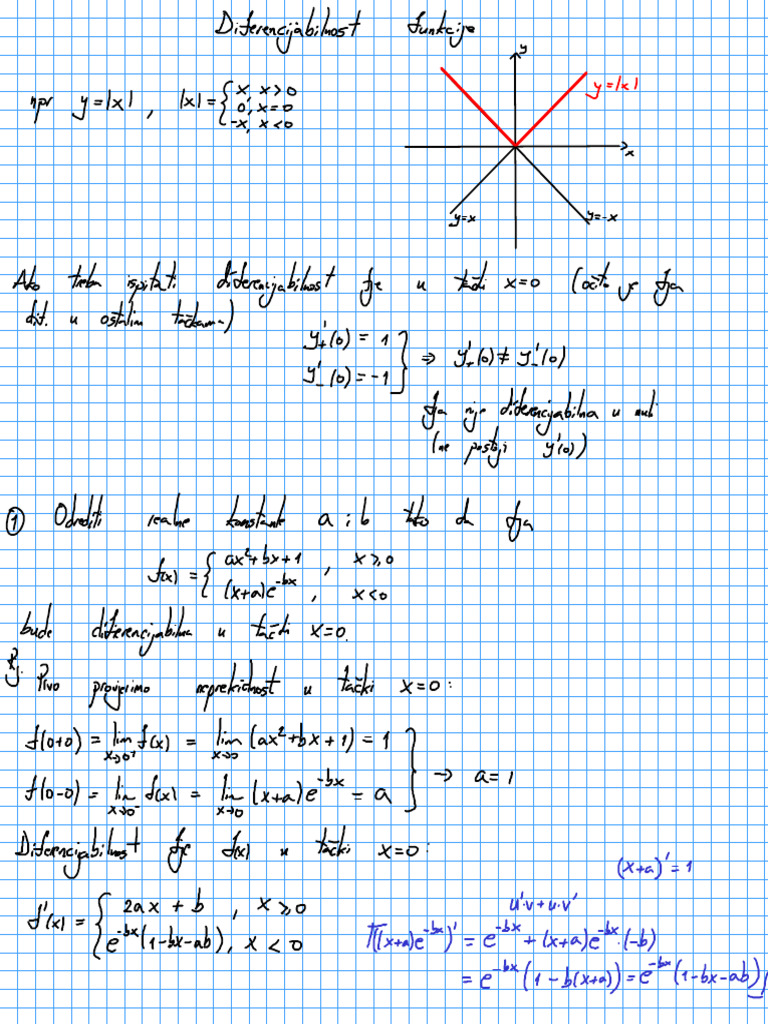 Diferencijabilnost funkcije
npr y=|x| , |x| = { x, x>0
0, x=0
-x, x<0
y
y=|x|
x
y=x
y=-x
Ako treba ispitati diferencijabilnost fje u tački x=0 (očito je fja
dif. u ostalim tačkama)
y'₊(0) = 1
y'₋(0) = -1 } ⇒ y'₊(0) ≠ y'₋(0)
fja nije diferencijabilna u nuli
(ne postoji y'(0))
① Odrediti realne konstante a i b tako da fja
f(x) = { ax²+bx+1 , x≥0
(x+a)e^{-bx} , x<0
bude diferencijabilna u tački x=0.
Rj. Prvo provjerimo neprekidnost u tački x=0:
f(0+0) = lim_{x→0⁺} f(x) = lim_{x→0} (ax²+bx+1) = 1
f(0-0) = lim_{x→0⁻} f(x) = lim_{x→0} (x+a)e^{-bx} = a } → a=1
Diferencijabilnost fje f(x) u tački x=0:
(x+a)'=1
f'(x) = { 2ax + b , x≥0
e^{-bx}(1-bx-ab), x<0
u'·v+u·v'
[((x+a)e^{-bx})' = e^{-bx} + (x+a)e^{-bx}·(-b)
= e^{-bx}(1-b(x+a)) = e^{-bx}(1-bx-ab)]